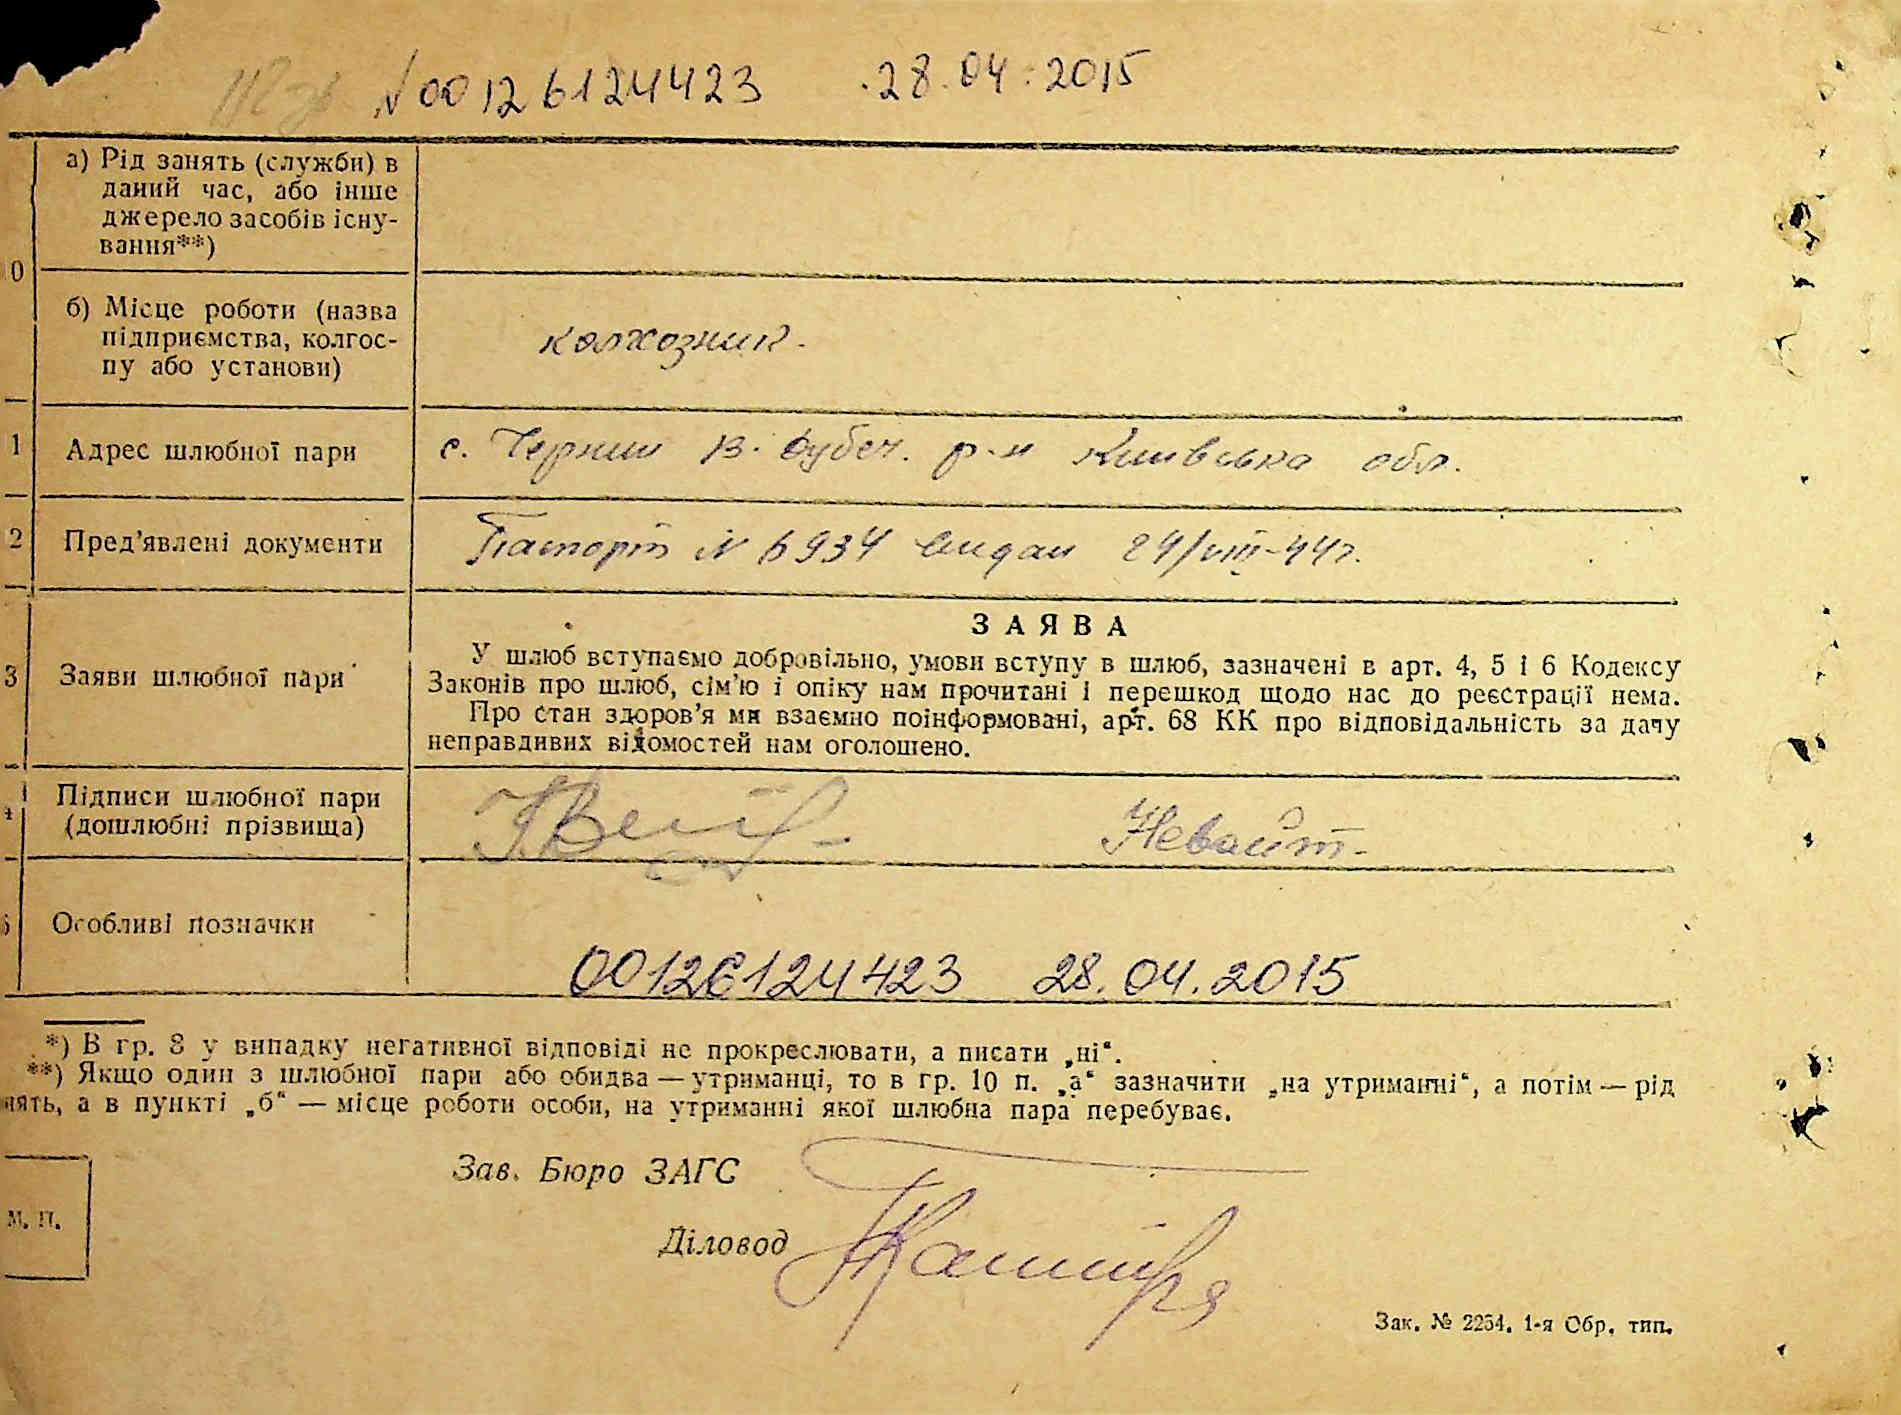 N 00126124423 28.04.2015
0
а) Рід занять (служби) в
даний час, або інше
джерело засобів існу-
вання**)
б) Місце роботи (назва
підприємства, колгос-
пу або установи)
колхозник.
1 Адрес шлюбної пари
с. Чернин В. Дубеч. р-н Київська обл.
2 Пред’явлені документи
Паспорт N 6934 видан 24/VIII-44г.
3 Заяви шлюбної пари
ЗАЯВА
У шлюб вступаємо добровільно, умови вступу в шлюб, зазначені в арт. 4, 5 і 6 Кодексу
Законів про шлюб, сім’ю і опіку нам прочитані і перешкод щодо нас до реєстрації нема.
Про стан здоров’я ми взаємно поінформовані, арт. 68 КК про відповідальність за дачу
неправдивих відомостей нам оголошено.
4 Підписи шлюбної пари
(дошлюбні прізвища)
Особливі позначки
00126124423 28.04.2015
*) В гр. 8 у випадку негативної відповіді не прокреслювати, а писати „ні“.
**) Якщо один з шлюбної пари або обидва — утриманці, то в гр. 10 п. „а“ зазначити „на утриманні“, а потім — рід
нять, а в пункті „б“ — місце роботи особи, на утриманні якої шлюбна пара перебуває.
Зав. Бюро ЗАГС
Діловод
М. П.
Зак. № 2254. 1-я Обр. тип.